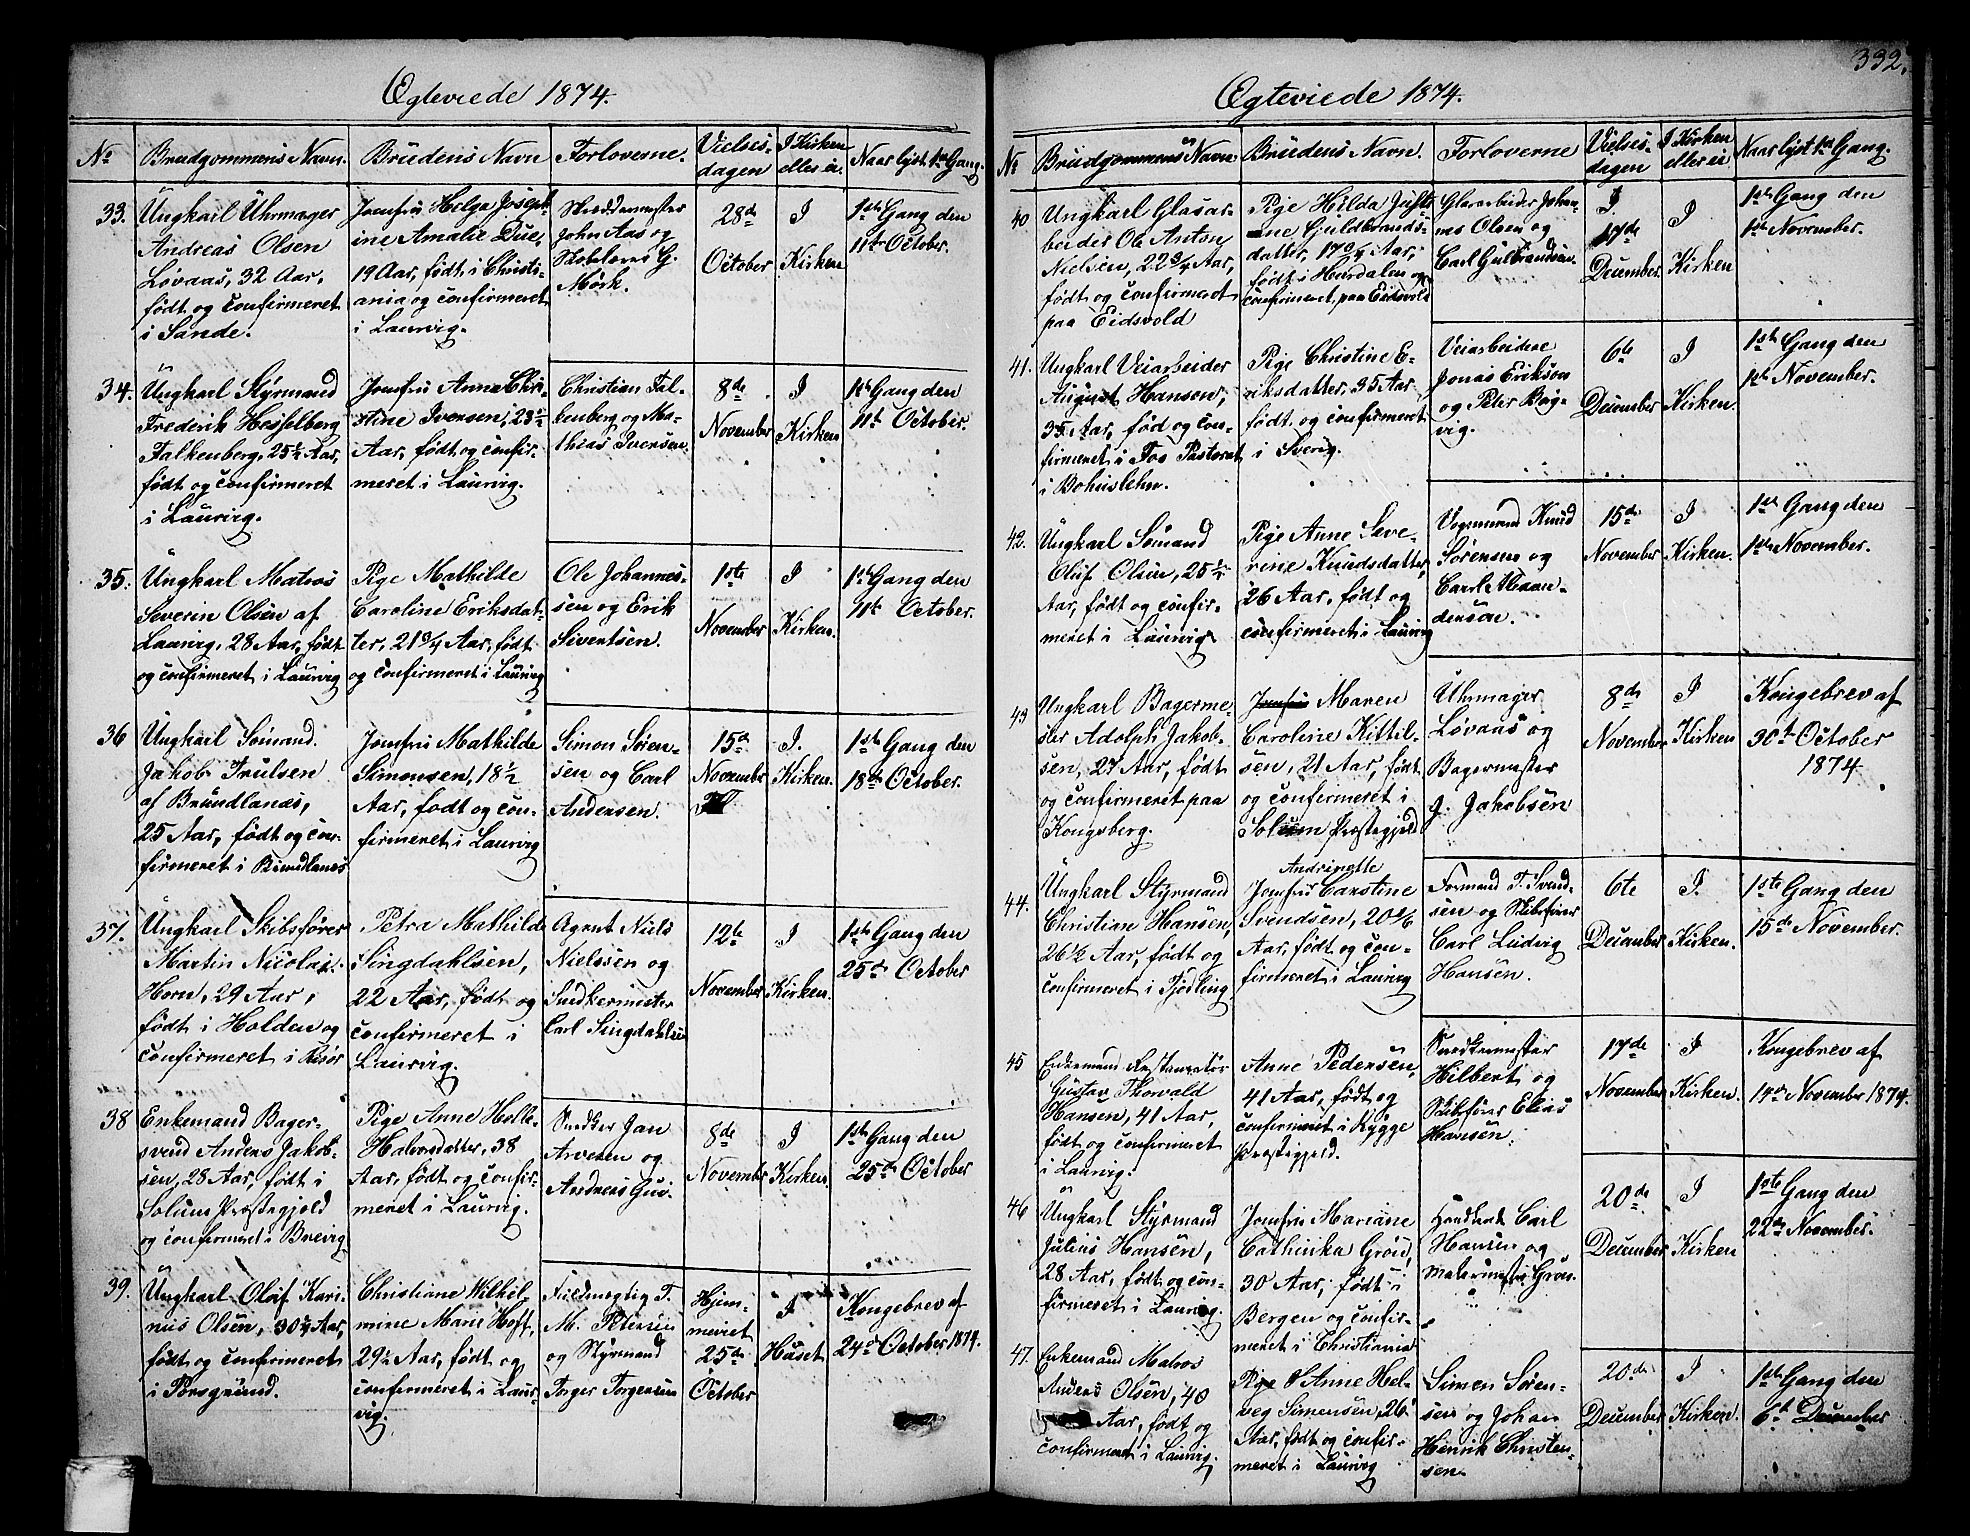 332.
Egteviede 1874.
No
Brudgommens Navn.
Brudens Navn
Forloverne.
Vielses-
dagen
I Kirken
eller ei.
Naar lyst 1ste Gang.
33.
Ungkarl Uhrmager
Andreas Olsen
Løvaas, 32 Aar,
født og confirmeret
i Sande.
Jomfru Helga Joseph-
ine Amalie Due,
19 Aar, født i Christi-
ania og confirmeret
i Laurvig.
Skræddermester
John Aas og
Skolelærer G.
Mørk.
28de
October
I
Kirken
1ste Gang den
11te October.
34.
Ungkarl Styrmand
Frederik Hesselberg
Falkenberg, 25½ Aar,
født og confirmeret
i Laurvig.
Jomfru Anne Chri-
stine Iversen, 23½
Aar, født og confir-
meret i Laurvig.
Christian Fal-
kenberg og Ma-
thias Iversen.
8de
November
I
Kirken
1ste Gang den
11te October.
35.
Ungkarl Matros
Severin Olsen af
Laurvig, 28 Aar, født
og confirmeret i Laurvig
Pige Mathilde
Caroline Eriksdat-
ter, 21 3/4 Aar, født
og confirmeret i Laurvig
Ole Johannes-
sen og Erik
Sivertsen.
1ste
November
I
Kirken.
1ste Gang den
11te October.
36
Ungkarl Sømand.
Jakob Trulsen
af Brundlanæs,
25 Aar, født og con-
firmeret i Brundlanæs
Jomfru Mathilde
Simonsen, 18½
Aar, født og con-
firmeret i Laurvig
Simon Søren-
sen og Carl
Andersen.
15de
November
I.
Kirken.
1ste Gang den
18de October.
37.
Ungkarl Skibsfører
Martin Nicolai
Horn, 29 Aar,
født i Holden og
confirmeret i Risør
Petra Mathilde
Singdahlsen,
22 Aar, født og
confirmeret i
Laurvig.
Agent Niels
Nielssen og
Snedkermester
Carl Singdahlsen
12te
November
I
Kirken.
1ste Gang den
25de October
38
Enkemand Bager-
svend Anders Jakob-
sen, 28 Aar, født i
Solum Præstegjeld
og confirmeret i Brevig
Pige Anne Helle
Halvorsdatter, 38
Aar, født og confir-
meret i Laurvig.
Snedker Jan
Arvesen og
Andreas
8de
November
I
Kirken.
1ste Gang den
25de October
39.
Ungkarl Olaf Kari-
nius Olsen, 30¼ Aar,
født og confirmeret
i Porsgrund.
Christiane Wilhel-
mine Marie Hoft,
29½ Aar, født og
confirmeret i Laur-
vig.
Fuldmægtig T.
M. Petersen
og Styrmand
Torger Torgersen
Hjem-
meviet
25de
October
I
Huset
Kongebrev af
24de October 1874.
Egteviede 1874.
No
Brudgommens Navn
Brudens Navn.
Forloverne
Vielses-
dagen
I Kirken
eller ei
Naar lyst 1ste Gang.
40
Ungkarl Glasar-
beider Ole Anton
Nielsen, 22 3/4 Aar,
født og confirmeret
paa Eidsvold
Pige Hilda Justi-
ne Guldbrands-
datter, 17 3/4 Aar,
født i Hurdalen og
confirmeret paa Eidsvold
Glarbeider Johan-
nes Olsen og
Carl Gulbrandsen.
I.
17de
December.
I
Kirken
1ste Gang den
1ste November.
41.
Ungkarl Veiarbeider
August Hanson,
35 Aar, fød og con-
firmeret i Fos Pastorat
i Bohuslehn.
Pige Christine E-
riksdatter, 35 Aar,
født og confirmeret
i Sverig.
Veiarbeidere
Jonas Erikson
og Peter Bag-
vig.
6te
December
I
Kirken.
1ste Gang den
1ste November.
42.
Ungkarl Sømand
Oluf Olsen, 25½
Aar, født og confir-
meret i Laurvig.
Pige Anne Seve-
rine Knudsdatter,
26 Aar, født og
confirmeret i Laurvig
Vognmand Knud
Sørensen og
Carl
15de
November
I
Kirken.
1ste Gang den
1ste November.
43
Ungkarl Bagerme-
ster Adolph Jakob-
sen, 27 Aar, født
og confirmeret paa
Kongsberg.
Jomfru Maren
Caroline Kittil-
sen, 21 Aar, født
og confirmeret i
Solum Præstegjeld
Uhrmager
Løvaas og
Bagermester
J. Jakobsen
8de
November
I
Kirken
Kongebrev af
30te October
1874
44.
Ungkarl Styrmand
Christian Hansen,
26½ Aar, født og
confirmeret i Tjødling
Andrinette
Jomfru Carstine
Svendsen, 20 Aar, født og con-
firmeret i Laurvig
Formand T. Svend-
sen og Skibsfører
Carl Ludvig
Hansen.
6te
December
I.
Kirken.
1ste Gang den
15de November.
45
Enkemand Restauratør
Gustav Thorvald
Hansen, 41 Aar,
født og confirmeret
i Laurvig.
Anne Pedersen,
41 Aar, født og
confirmeret i Rygge
Præstegjeld.
Snedkermester
Hilbert og
Skibsfører Elias
Hansen.
17de
November
I
Kirken.
Kongebrev af
14de November 1874.
46
Ungkarl Styrmand
Julius Hansen,
28 Aar, født og con-
firmeret i Laurvig.
Jomfru Mariane
Cathinka Grøn,
30 Aar, født i
Bergen og confir-
meret i Christiania
Handlende Carl
Hansen og
Malermester Grøn.
20de
December
I
Kirken
1ste Gang den
22de November.
47.
Enkemand Matros
Anders Olsen, 40
Aar, født og
confirmeret i Laurvig.
Pige Anne Hel-
veg Simensen, 26
Aar, født og confir-
meret i Laurvig
Simen Søren-
sen og Johan
Henrik Christen-
sen.
20de
December
I
Kirken.
1ste Gang den
6te December